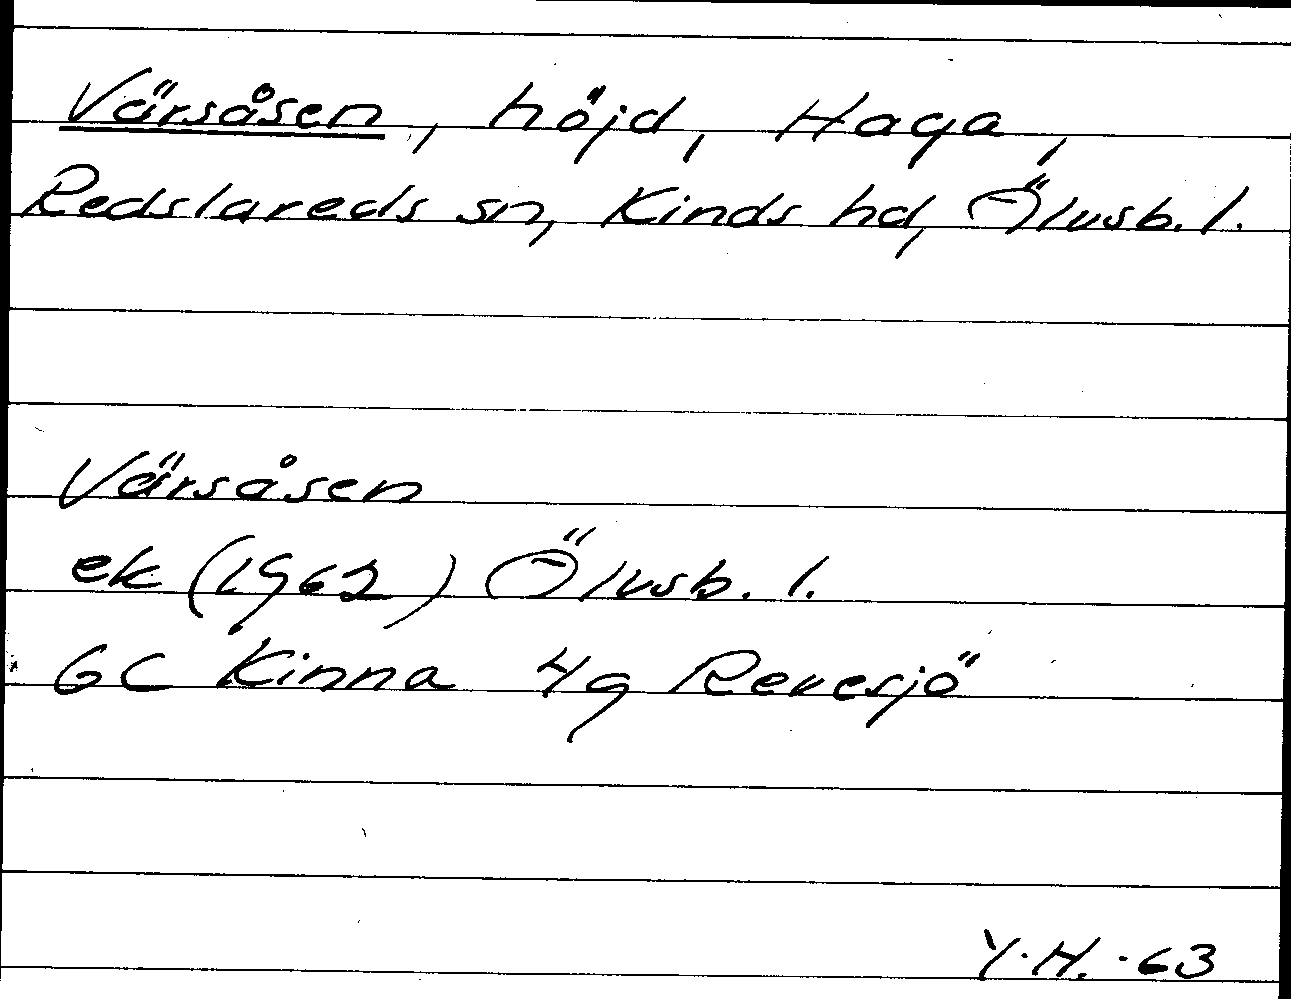 Värsåsen, höjd, Haga,
Redslareds sn, Kinds hd, Älvsb. l.
Värsåsen
ek (1962) Älvsb. l.
6C Kinna 4g Revesjö
Y.H. -63